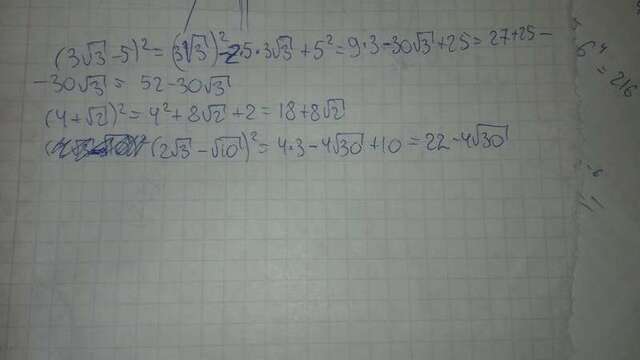 (3√3 -5)² = (3√3)² - 2·5·3√3 + 5² = 9·3 - 30√3 + 25 = 27 + 25 -
- 30√3 = 52 - 30√3
(4 + √2)² = 4² + 8√2 + 2 = 18 + 8√2
(2√3 - √10)² = 4·3 - 4√30 + 10 = 22 - 4√30
= 216